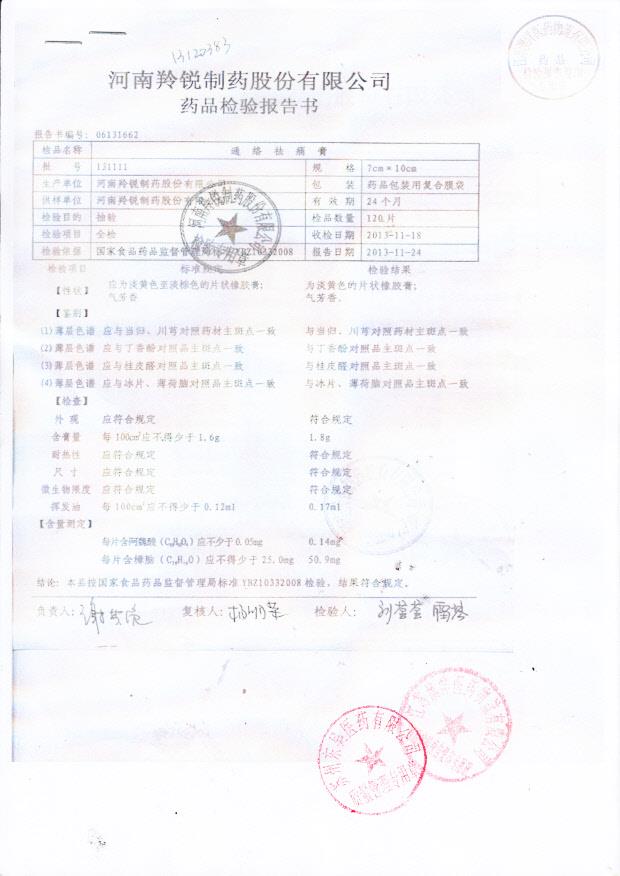 13120383
河南羚锐制药股份有限公司
药品检验报告书
报告书编号: 06131662
检品名称 通络祛痛膏
批 号 131111 规 格 7cm×10cm
生产单位 河南羚锐制药股份有限公司 包 装 药品包装用复合膜袋
供样单位 河南羚锐制药股份有限公司 有 效 期 24个月
检验目的 抽验 检品数量 120片
检验项目 全检 收检日期 2013-11-18
检验依据 国家食品药品监督管理局标准YBZ10332008 报告日期 2013-11-24
检验项目 标准规定 检验结果
【性状】 应为淡黄色至淡棕色的片状橡胶膏; 为淡黄色的片状橡胶膏;
气芳香 气芳香.
【鉴别】
(1)薄层色谱 应与当归、川芎对照药材主斑点一致 与当归、川芎对照药材主斑点一致
(2)薄层色谱 应与丁香酚对照品主斑点一致 与丁香酚对照品主斑点一致
(3)薄层色谱 应与桂皮醛对照品主斑点一致 与桂皮醛对照品主斑点一致
(4)薄层色谱 应与冰片、薄荷脑对照品主斑点一致 与冰片、薄荷脑对照品主斑点一致
【检查】
外 观 应符合规定 符合规定
含膏量 每100cm²应不得少于1.6g 1.8g
耐热性 应符合规定 符合规定
尺 寸 应符合规定 符合规定
微生物限度 应符合规定 符合规定
挥发油 每100cm²应不得少于0.12ml 0.17ml
【含量测定】
每片含阿魏酸(C₁₀H₁₀O₄)应不少于0.05mg 0.14mg
每片含樟脑(C₁₀H₁₆O)应不得少于25.0mg 50.9mg
结论: 本品按国家食品药品监督管理局标准YBZ10332008检验, 结果符合规定。
负责人: 复核人: 检验人:
河南羚锐制药股份有限公司
检验专用章